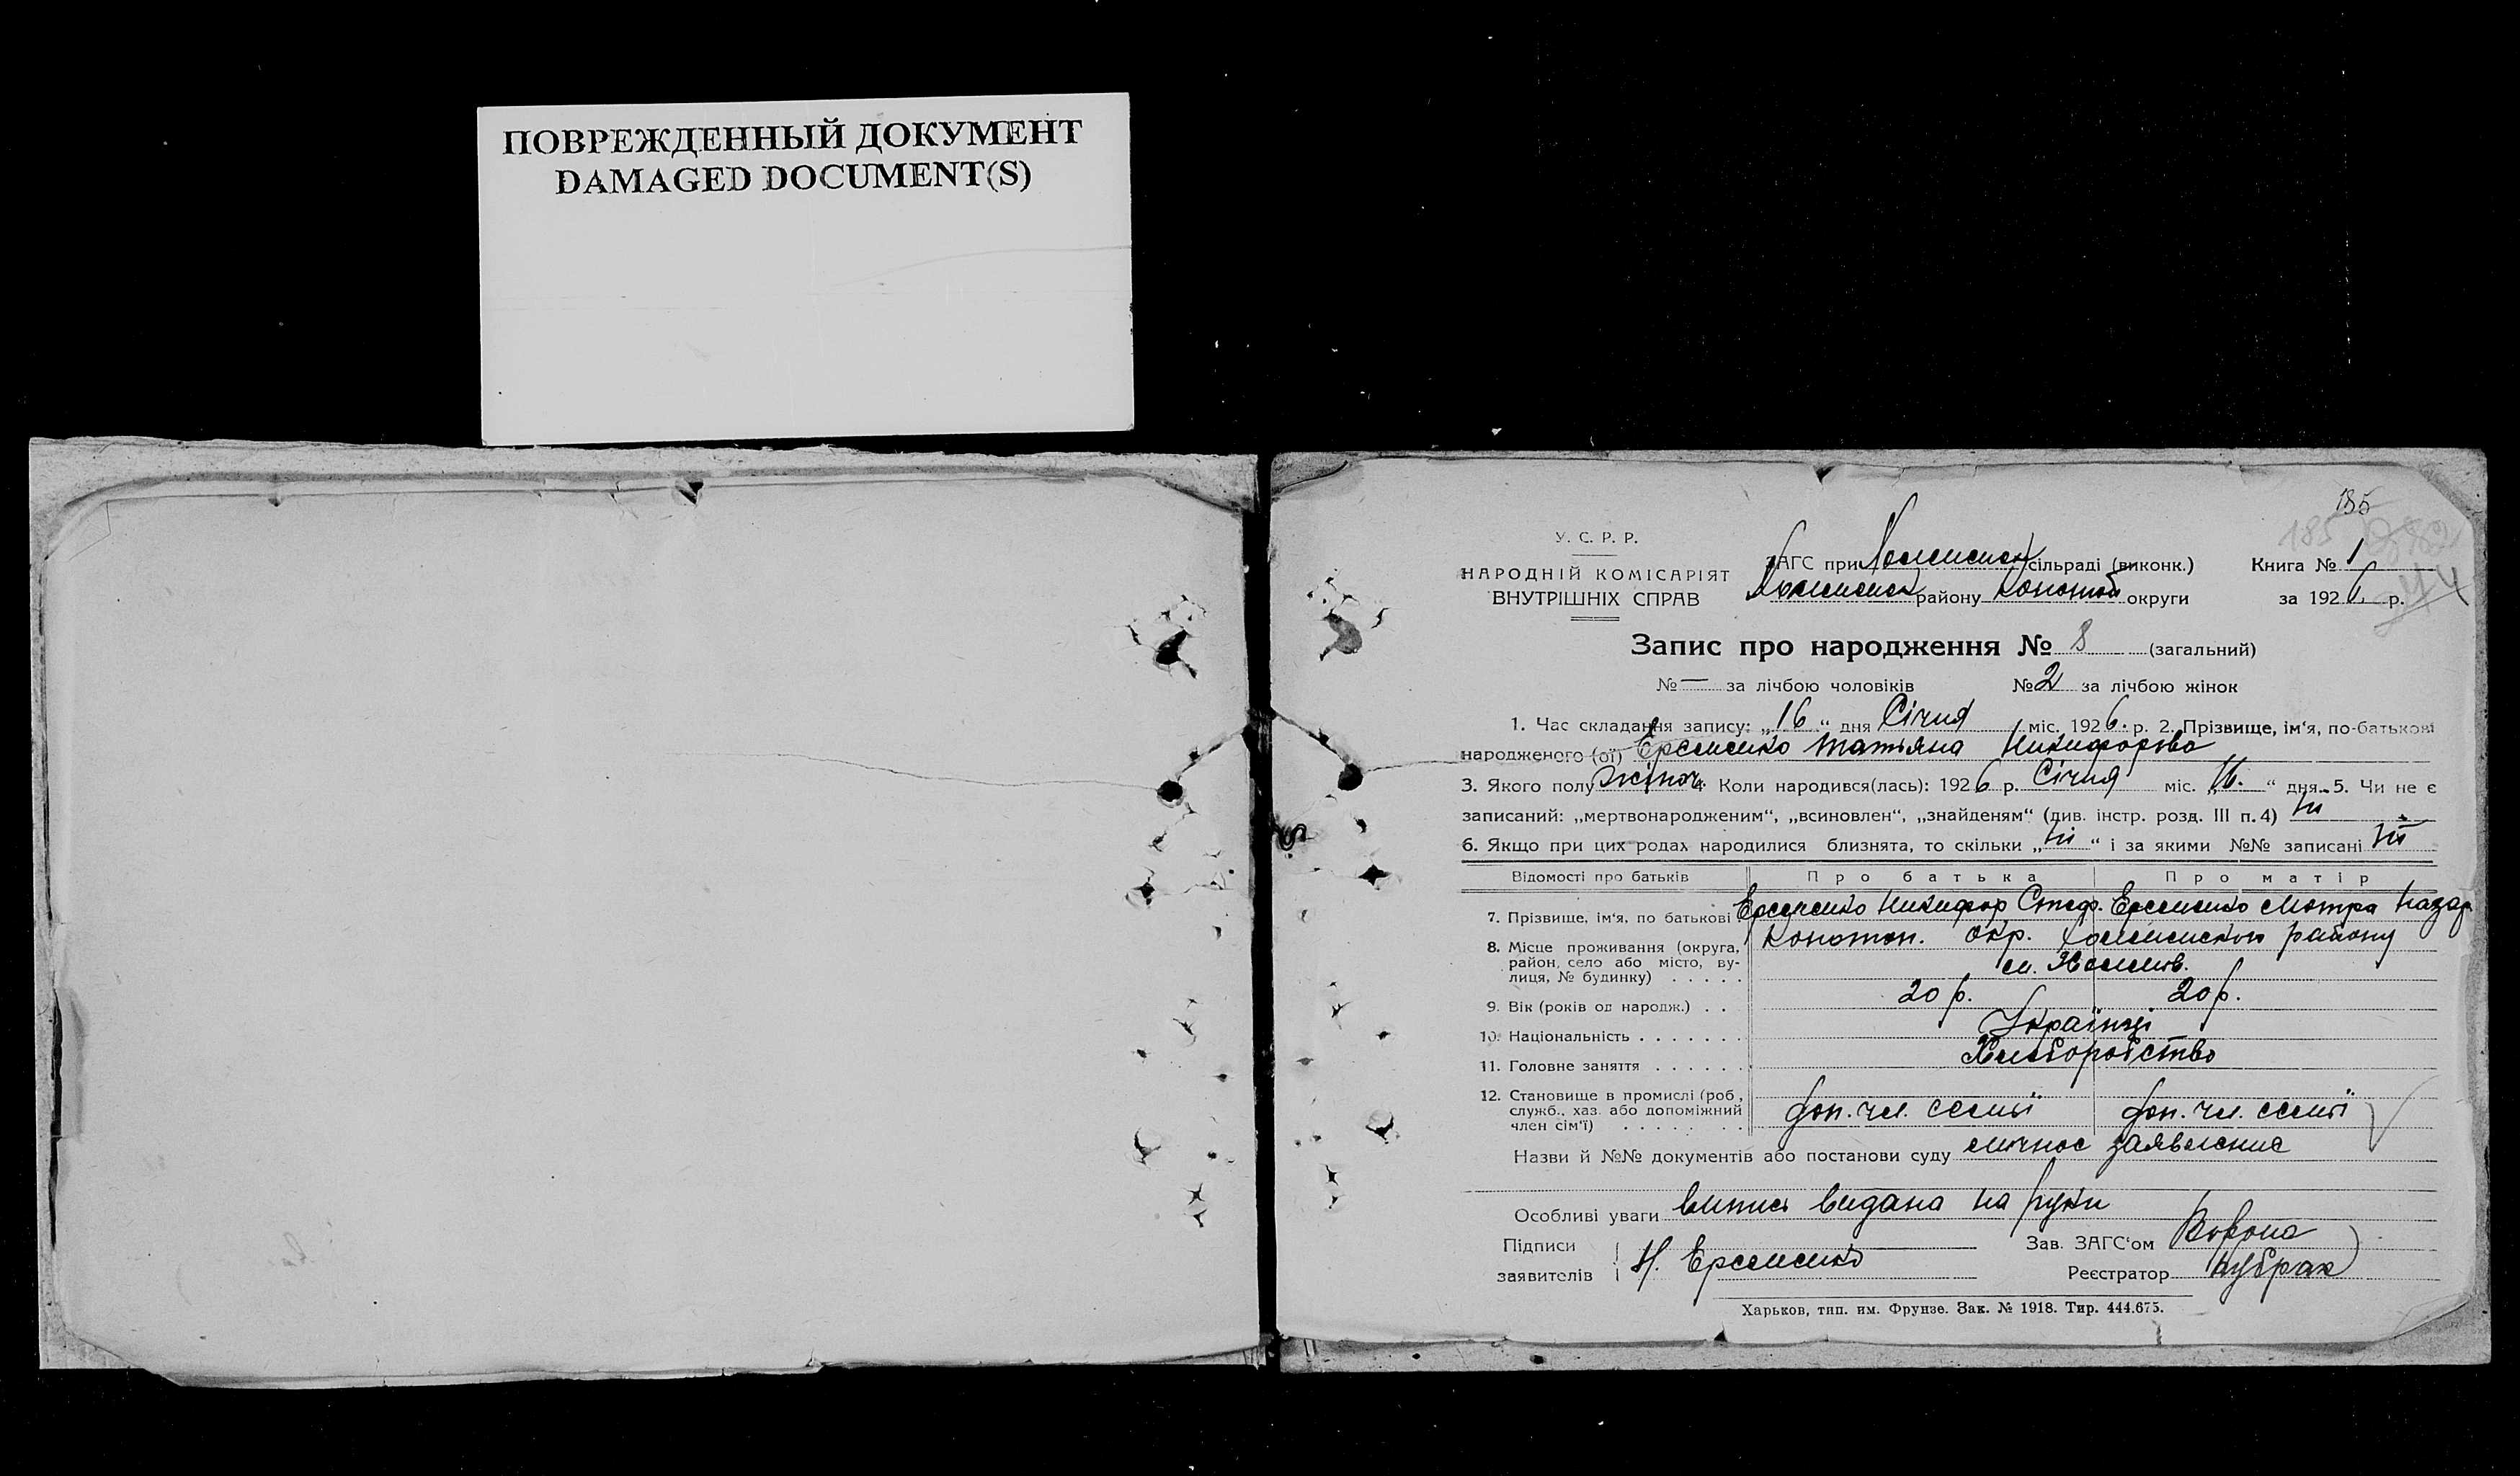 ПОВРЕЖДЕННЫЙ ДОКУМЕНТ
DAMAGED DOCUMENT(S)
185
185
У. С. Р. Р.
НАРОДНІЙ КОМІСАРІЯТ
ВНУТРІШНІХ СПРАВ
ЗАГС при сільраді (виконк.)
району Конотоп округи
Книга № 1
за 1926 р.
Запис про народження № 8 (загальний)
№ — за лічбою чоловіків № 2 за лічбою жінок
1. Час складання запису: „16“ дня Січня міс. 1926 р. 2. Прізвище, ім‘я, по-батькові
народженого (ої) Еременко Татьяна Никифорова
3. Якого полу жіноч. 4. Коли народився(лась): 1926 р. Січня міс. „ “ дня. 5. Чи не є
записаний: „мертвонародженим“, „всиновлен“, „знайденям“ (див. інстр. розд. III п. 4) Ні
6. Якщо при цих родах народилися близнята, то скільки „Ні“ і за якими №№ записані Ні
Відомості про батьків Про батька Про матір
7. Прізвище, ім‘я, по батькові Еременко Никифор Стеф. Еременко Мотря Назар.
8. Місце проживання (округа, район, село або місто, вулиця, № будинку) . . . . . Конотоп. окр. району
9. Вік (років од народж.) . . 20 р. 20 р.
10. Національність . . . . . . . Українці
11. Головне заняття . . . . . . Хлиборобство
12. Становище в промислі (роб., служб., хаз. або допоміжний член сім‘ї) . . . . . . . . доп. чл. семьї доп. чл. семьї
Назви й №№ документів або постанови суду личное заявление
Особливі уваги випись видана на руки
Підписи
заявителів Н. Еременко
Зав. ЗАГС‘ом Ворона
Реєстратор Кубрак
Харьков, тип. им. Фрунзе. Зак. № 1918. Тир. 444.675.